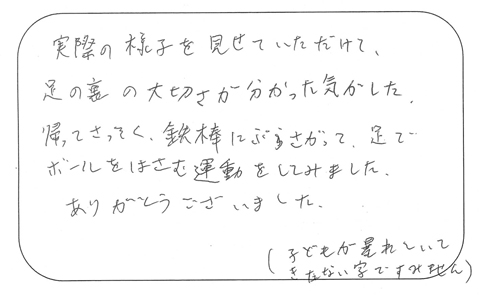 実際の様子を見せていただけて、
足の裏の大切さが分かった気がした。
帰ってさっそく、鉄棒にぶらさがって、足で
ボールをはさむ運動をしてみました。
ありがとうございました。
(子どもが暴れていて
きたない字ですみません)